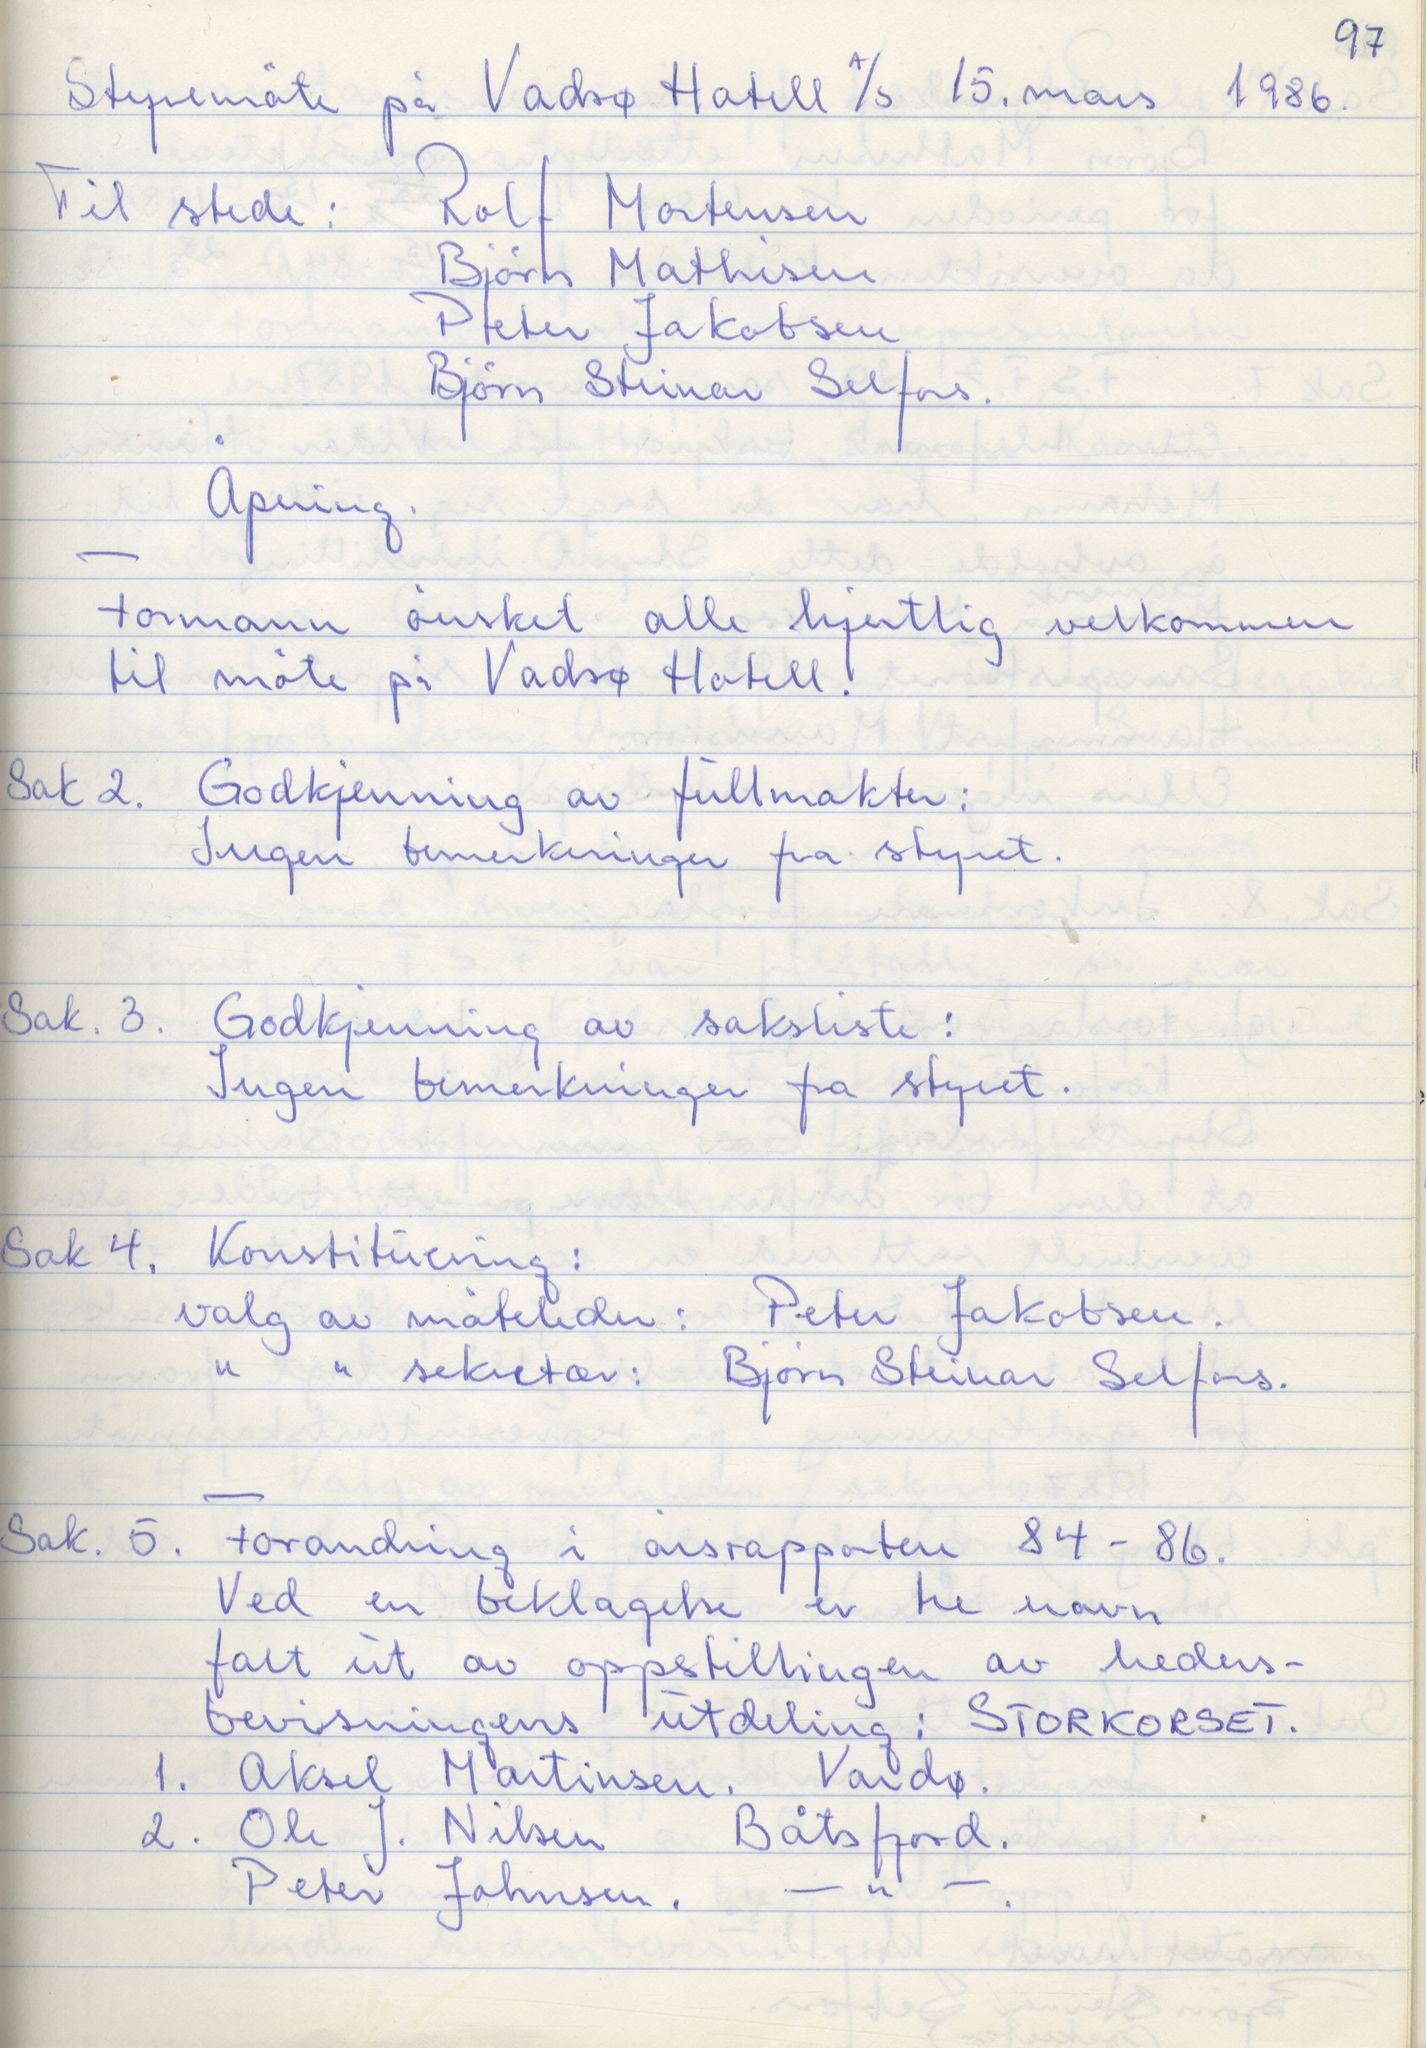 97
Styremöte på Vadsø Hotell A/S 15. mars 1986.
Til stede: Rolf Mortensen
Björn Mathisen
Peter Jakobsen
Björn Steinar Selfors.
Åpning.
Formann önsket alle hjertlig velkommen
til möte på Vadsø Hotell.
Sak 2. Godkjenning av fullmakter:
Ingen bemerkninger fra styret.
Sak. 3. Godkjenning av saksliste:
Ingen bemerkninger fra styret.
Sak 4. Konstituering:
valg av möteleder: Peter Jakobsen.
" " sekretær: Björn Steinar Selfors.
Sak. 5. Forandring i årsrapporten 84-86.
Ved en beklagelse er tre navn
falt ut av oppstillingen av heders-
bevisningens utdeling: STORKORSET.
1. Aksel Martinsen. Vardø.
2. Ole J. Nilsen Båtsfjord.
Peter Johnsen. — " —.